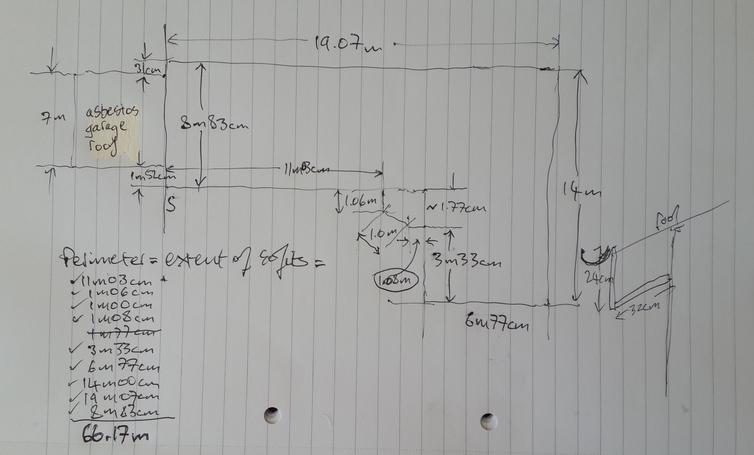 19.07m
31cm
7m
asbestos
garage
roof
8m83cm
11m03cm
1m52cm
S
1.06m
~1.77cm
14m
1.0m
3m33cm
1.08m
6m77cm
roof
24cm
32cm
Perimeter = extent of soffits =
✓11m03cm
✓1m06cm
✓1m00cm
✓1m08cm
1m77cm
✓3m33cm
✓6m77cm
✓14m00cm
✓19m07cm
✓8m83cm
66.17m